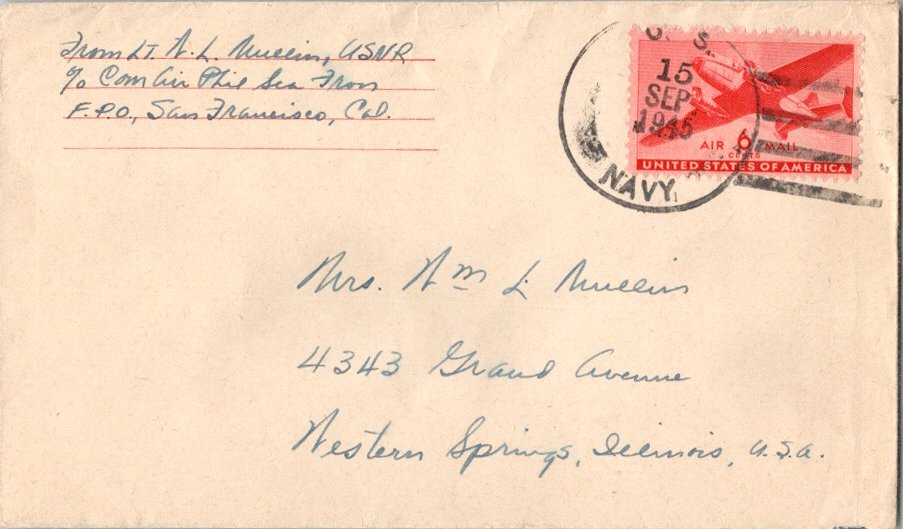 From Lt. W. L. Mullin, USNR
c/o Com Air Phil Sea Fron
F.P.O., San Francisco, Cal.
U. S.
15
SEP
1945
NAVY
AIR 6 MAIL
CENTS
UNITED STATES OF AMERICA
Mrs. Wm L. Mullin
4343 Grand Avenue
Western Springs, Illinois, U.S.A.